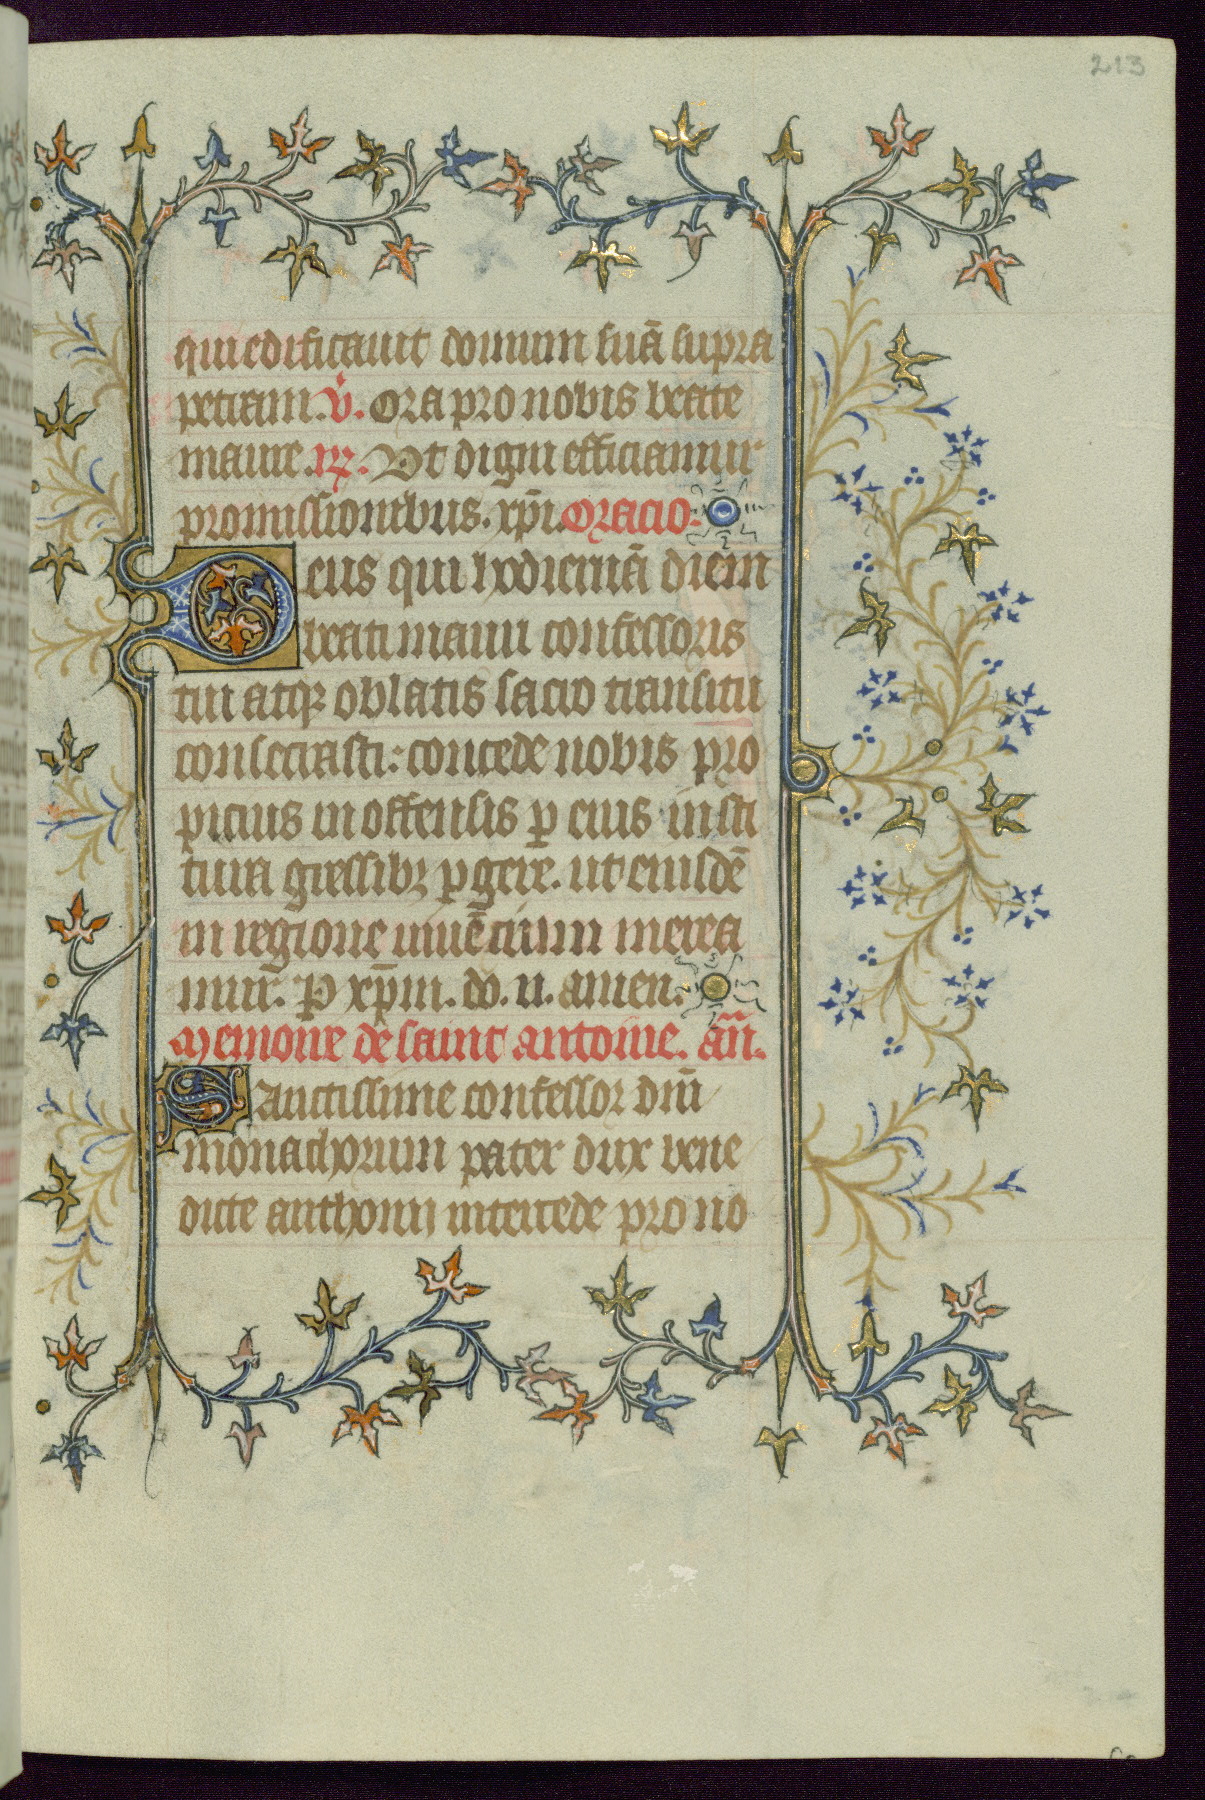 213
qui edificauit domum suā supra
petram. v̄. Ora pro nobis beate
maure. ꝶ. Vt digni efficiamur
promissionibus. xp̄i. Oracio.
Deus qui hodiernā diem
beati mauri confessoris
tui atqꝫ oblatis sacro transitu
consecrasti: concede nobis pro
picius in offensis ꝑ eius insti
tuta gressibꝫ ꝑgere. ut eiusdē
in regione uiuēcium merea
mur. P xp̄m. do. n. amen.
Memoire de saint antoine. an̄.
Sanctissime confessor dn̄i
monachorum pater dux bene
dicte anthonii intercede pro no